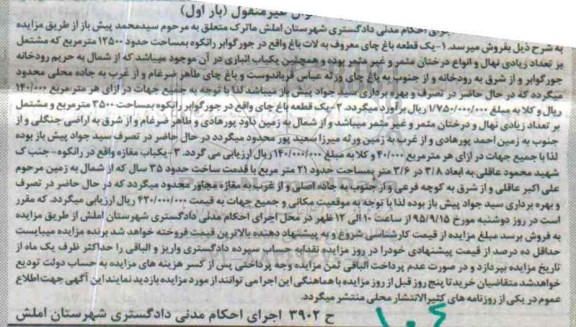 اموال غیرمنقول (بار اول)
اجرای احکام مدنی دادگستری شهرستان املش ماترک متعلق به مرحوم سیدمحمد پیش باز از طریق مزایده
به شرح ذیل بفروش میرسد. ۱-یک قطعه باغ چای معروف به لات باغ واقع در جورگوابر رانکوه بمساحت حدود ۱۲۵۰۰ مترمربع که مشتمل
بر تعداد زیادی نهال و انواع درختان مثمر و غیر مثمر بوده و همچنین یکباب انباری در آن موجود میباشد که از شمال به حریم رودخانه
جورگوابر و از شرق به رودخانه و از جنوب به باغ چای ورثه عباس قرباندوست و باغ چای طاهر ضرغام و از غرب به جاده محلی محدود
میگردد که در حال حاضر در تصرف و بهره برداری سید جواد پیش باز میباشد لذا با توجه به جمیع جهات در ازای هر مترمربع ۱۴۰/۰۰۰
ریال و کلا به مبلغ ۱/۷۵۰/۰۰۰/۰۰۰ ریال برآورد میگردد. ۲-یک قطعه باغ چای واقع در جورگوابر رانکوه بمساحت ۳۵۰۰ مترمربع و مشتمل
بر تعدادی نهال و درختان مثمر و غیر مثمر میباشد و از شمال به زمین داود پورهادی و طاهر ضرغام و از شرق به اراضی جنگلی و از
جنوب به زمین احمد پورهادی و از غرب به زمین ورثه میرزا سعید پور محدود میگردد در حال حاضر در تصرف سید جواد پیش باز بوده
لذا با جمیع جهات در ازای هر مترمربع ۴۰/۰۰۰ و کلا به مبلغ ۱۴۰/۰۰۰/۰۰۰ ریال ارزیابی می گردد. ۳-یکباب مغازه واقع در رانکوه- جنب ک
شهید محمود عاقلی به ابعاد ۳/۸ در ۳/۶ متر بمساحت حدود ۲۱ متر مربع با قدمت ساخت حدود ۳۵ سال که از شمال به زمین مرحوم
علی اکبر عاقلی و از شرق به کوچه فرعی و از جنوب به جاده اصلی و از غرب به مغازه مجاور محدود میگردد که در حال حاضر در تصرف
و بهره برداری سید جواد پیش باز بوده لذا با توجه به موقعیت مکانی و جمیع جهات به قیمت ۴۲۰/۰۰۰/۰۰۰ ریال ارزیابی میگردد. که مقرر
است در روز دوشنبه مورخ ۹۵/۹/۱۵ از ساعت ۱۰ الی ۱۲ ظهر در محل اجرای احکام مدنی دادگستری شهرستان املش از طریق مزایده
به فروش برسد مبلغ مزایده از قیمت کارشناسی شروع و به پیشنهاد دهنده بالاترین قیمت فروخته خواهد شد برنده مزایده میبایست
حداقل ده درصد از قیمت پیشنهادی خود را در روز مزایده نقدا به حساب سپرده دادگستری واریز و الباقی را حداکثر ظرف یک ماه از
تاریخ مزایده بپردازد و در صورت عدم پرداخت الباقی ثمن مزایده وجه پرداختی پس از کسر هزینه های مزایده به حساب دولت تودیع
خواهد شد متقاضیان خرید تا پنج روز قبل از روز مزایده با هماهنگی این اجرا می توانند از مورد مزایده بازدید نمایند این آگهی جهت اطلاع
عموم در یکی از روزنامه های کثیرالانتشار محلی منتشر میگردد.
ح ۳۹۰۲ اجرای احکام مدنی دادگستری شهرستان املش